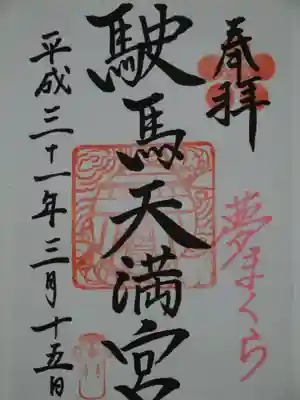 春拝
夢まくら
駛馬天満宮
平成三十一年三月十五日